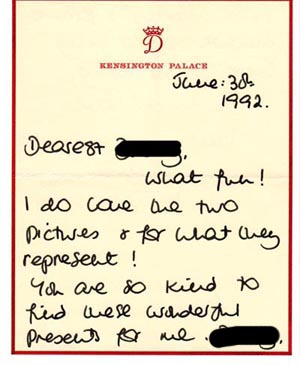 D
KENSINGTON PALACE
June: 3rd.
1992.
Dearest
What fun!
I do love the two
pictures & for what they
represent!
You are so kind to
find these wonderful
presents for me.